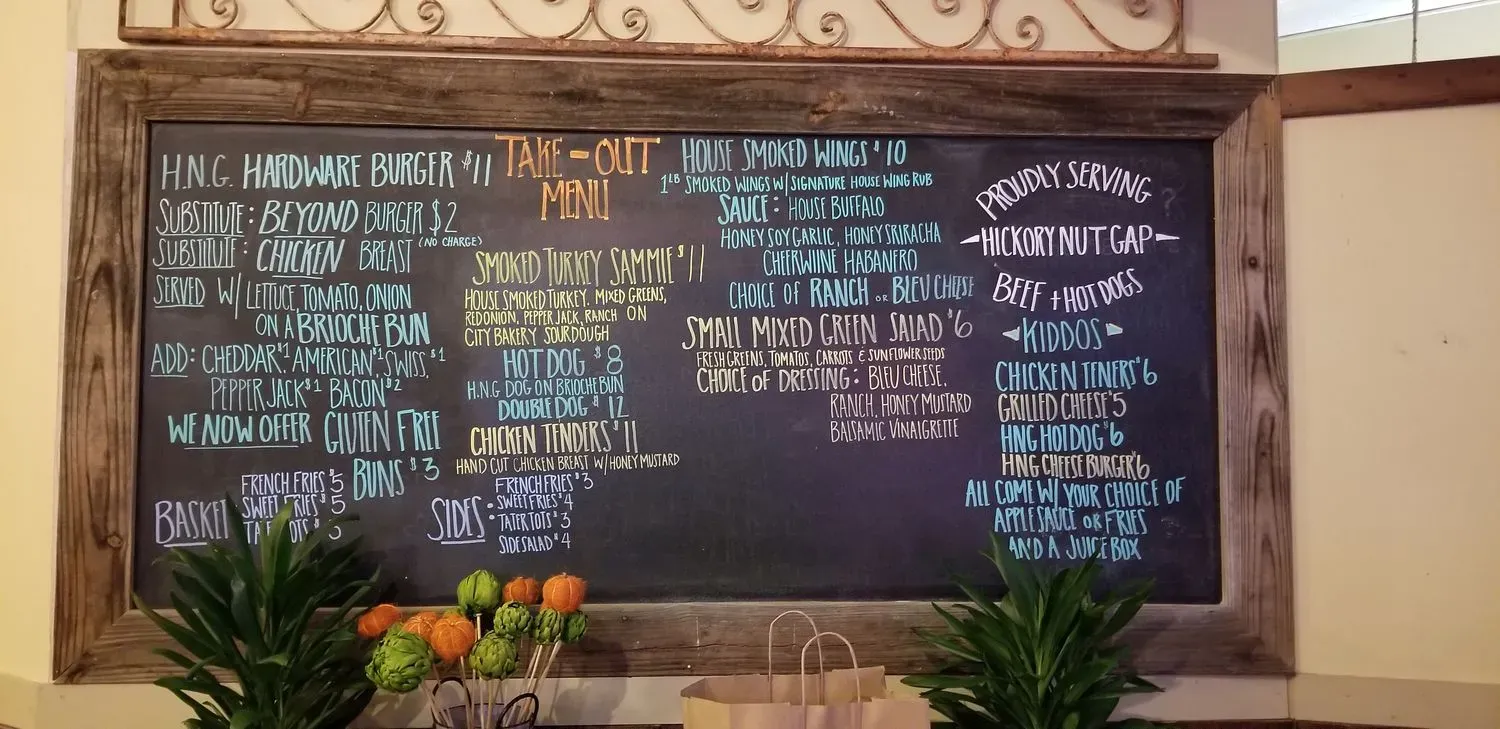 H.N.G. HARDWARE BURGER $11
SUBSTITUTE: BEYOND BURGER $2
SUBSTITUTE: CHICKEN BREAST (NO CHARGE)
SERVED W/ LETTUCE, TOMATO, ONION
ON A BRIOCHE BUN
ADD: CHEDDAR $1, AMERICAN $1, SWISS, $1
PEPPER JACK $1 BACON $2
WE NOW OFFER GLUTEN FREE
BUNS $3
BASKET
FRENCH FRIES $5
SWEET FRIES $5
TATER TOTS $5
TAKE-OUT
MENU
SMOKED TURKEY SAMMIE $11
HOUSE SMOKED TURKEY, MIXED GREENS,
RED ONION, PEPPER JACK, RANCH ON
CITY BAKERY SOURDOUGH
HOT DOG $8
H.N.G DOG ON BRIOCHE BUN
DOUBLE DOG $12
CHICKEN TENDERS $11
HAND CUT CHICKEN BREAST W/ HONEY MUSTARD
SIDES:
FRENCH FRIES $3
SWEET FRIES $4
TATER TOTS $3
SIDE SALAD $4
HOUSE SMOKED WINGS $10
1LB SMOKED WINGS W/ SIGNATURE HOUSE WING RUB
SAUCE: HOUSE BUFFALO
HONEY SOY GARLIC, HONEY SRIRACHA
CHEERWIINE HABANERO
CHOICE OF RANCH OR BLEU CHEESE
SMALL MIXED GREEN SALAD $6
FRESH GREENS, TOMATOS, CARROTS & SUNFLOWER SEEDS
CHOICE OF DRESSING: BLEU CHEESE,
RANCH, HONEY MUSTARD
BALSAMIC VINAIGRETTE
PROUDLY SERVING
HICKORY NUT GAP
BEEF + HOT DOGS
KIDDOS
CHICKEN TENERS $6
GRILLED CHEESE $5
HNG HOT DOG $6
HNG CHEESE BURGER $6
ALL COME W/ YOUR CHOICE OF
APPLE SAUCE OR FRIES
AND A JUICE BOX